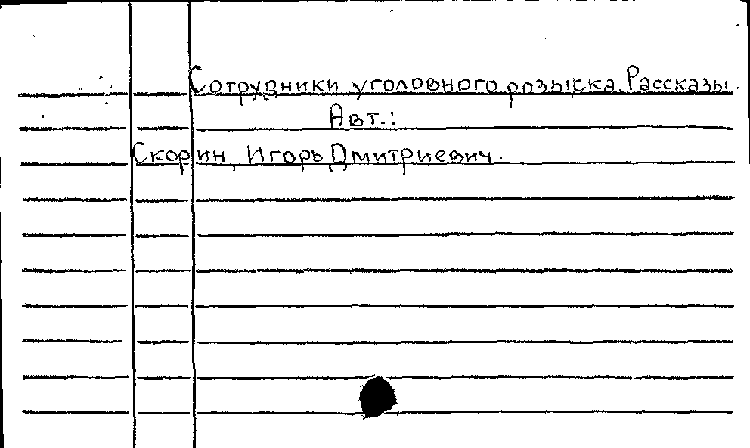 Сотрудники уголовного розыска. Рассказы.
Авт.:
Скорин, Игорь Дмитриевич.